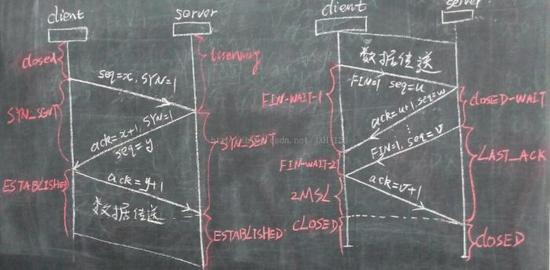 client
server
closed
listening
seq=x, SYN=1
SYN_SENT
ack=x+1, SYN=1
seq=y
SYN_SENT
ESTABLISHED
ack=y+1
数据传送
ESTABLISHED
client
server
数据传送
FIN=1 seq=u
FIN-WAIT-1
ack=u+1, seq=w
CLOSED-WAIT
FIN=1, seq=v
FIN-WAIT-2
LAST_ACK
ack=v+1
2MSL
CLOSED
CLOSED